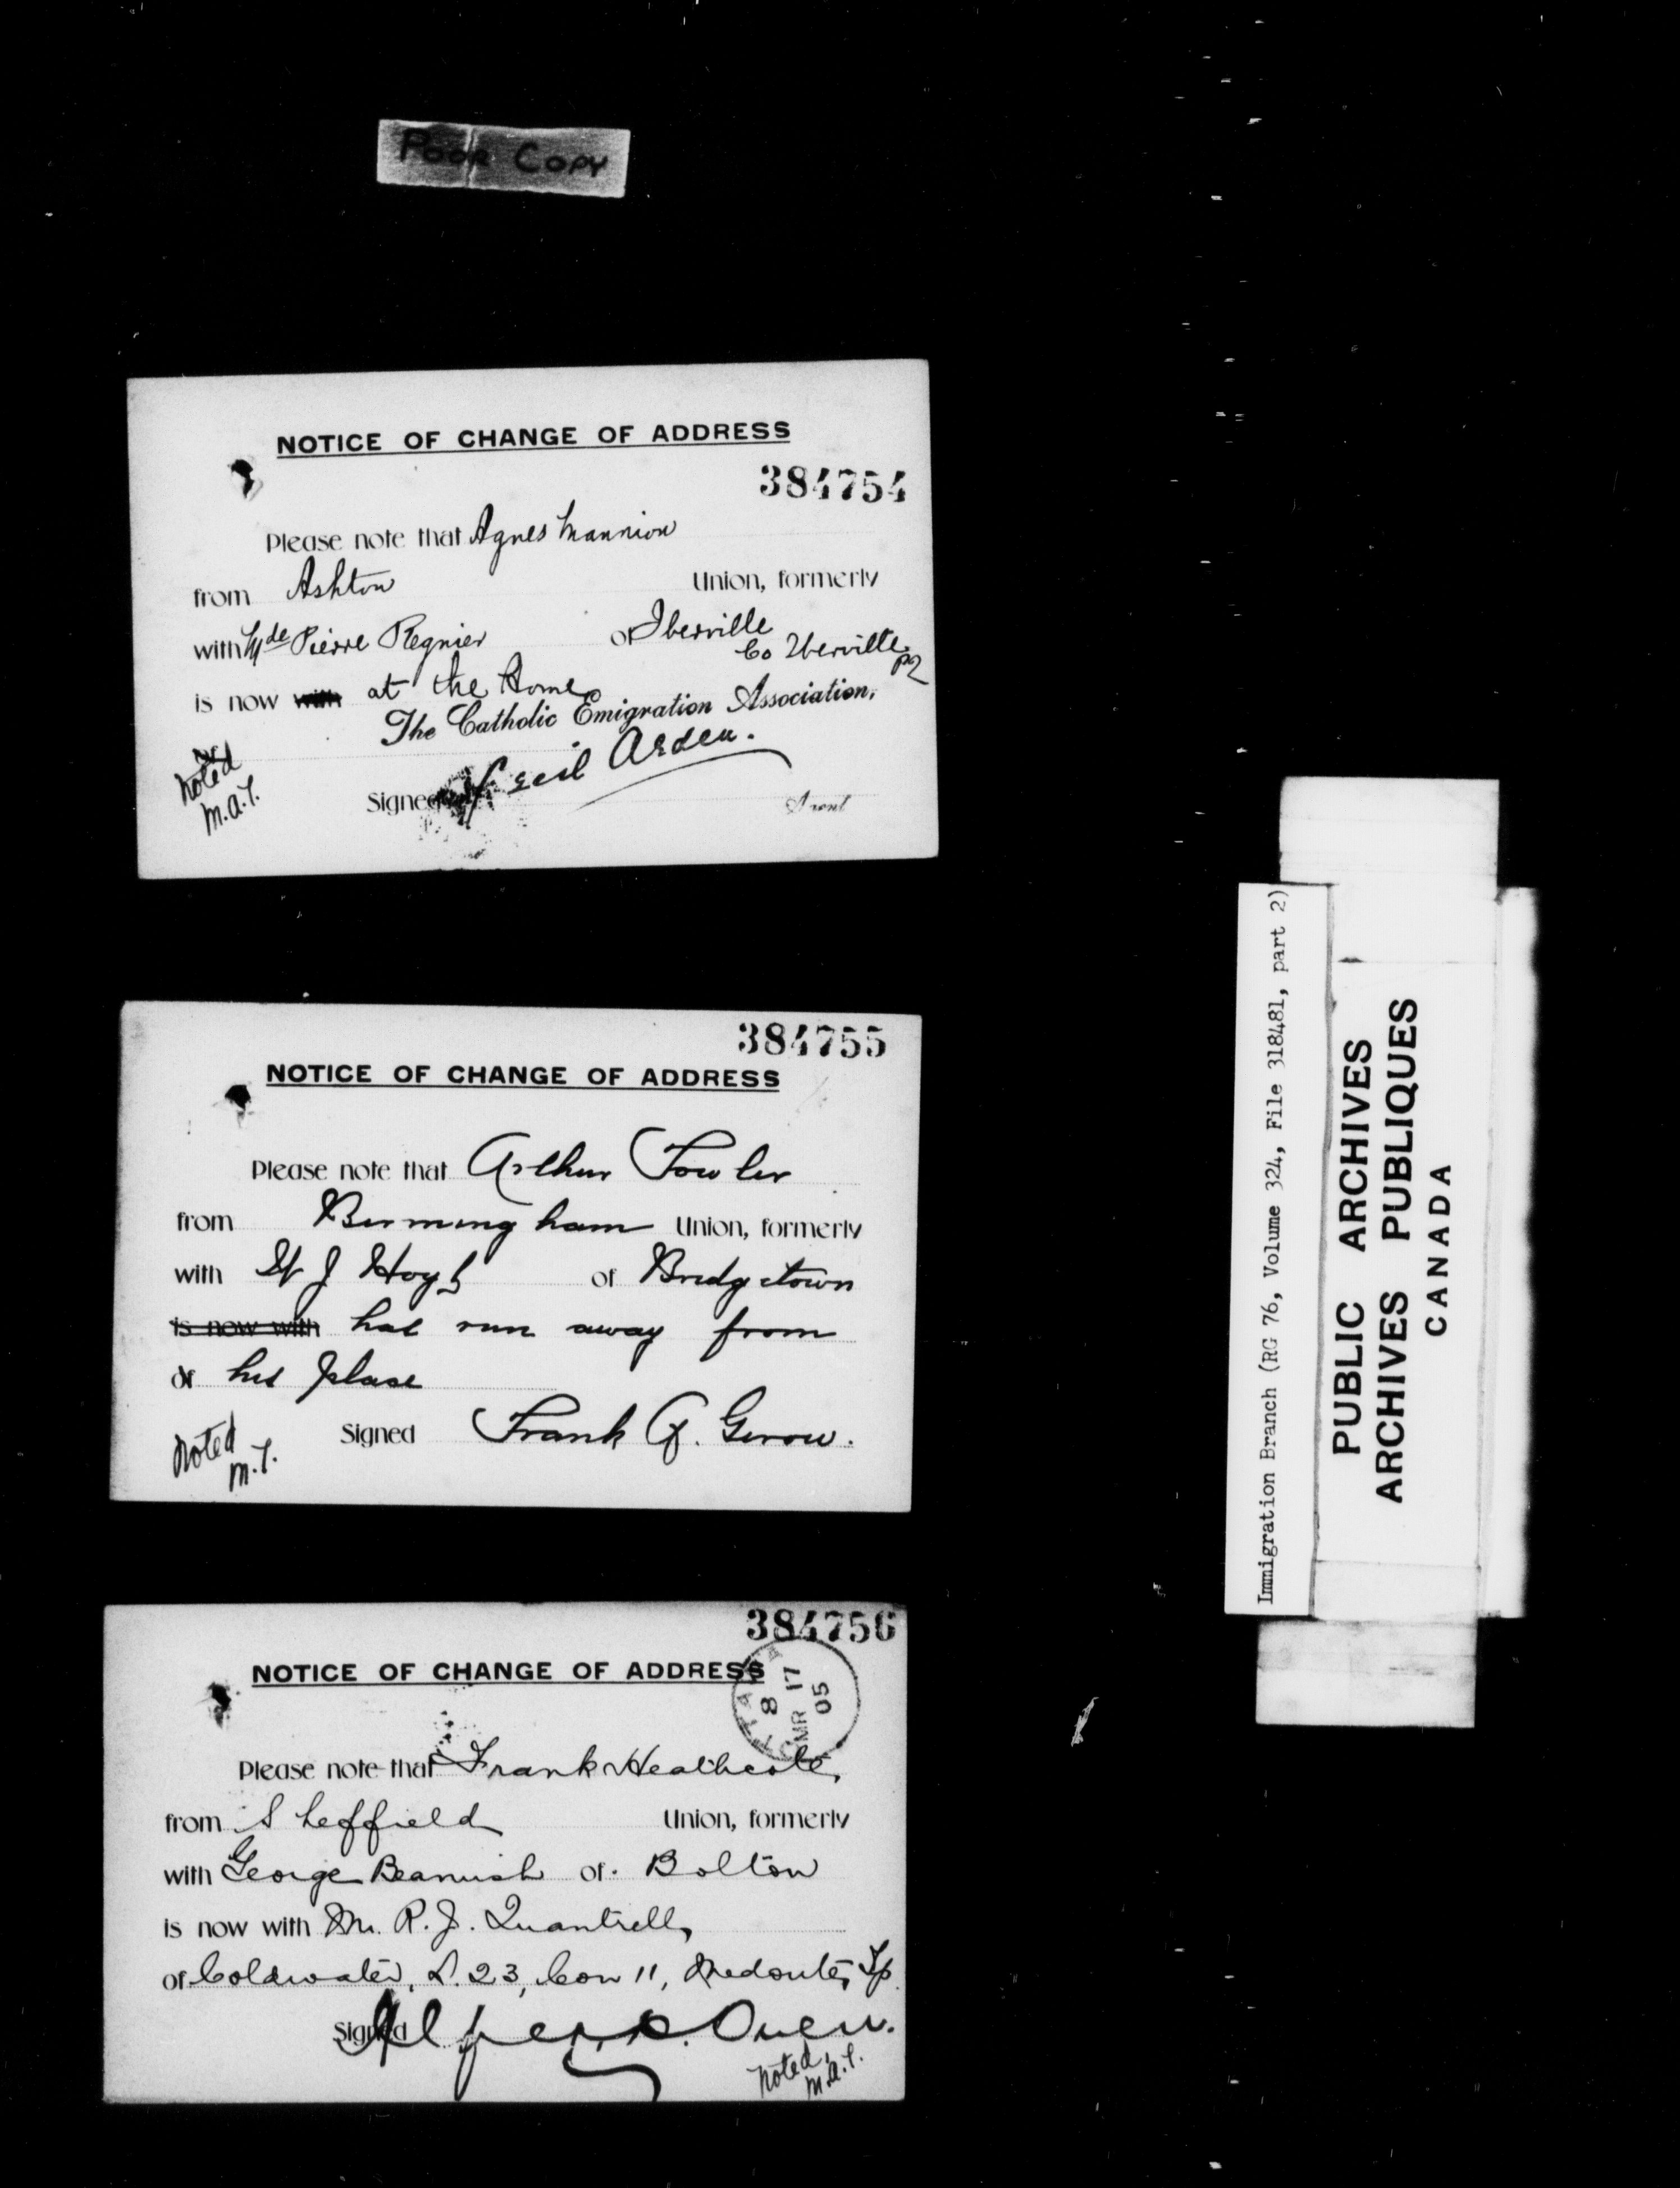 Poor Copy
NOTICE OF CHANGE OF ADDRESS
384754
Please note that Agnes Mannion
from Ashton Union, formerly
with Mde Pierre Regnier of Iberville
Co Iberville PQ
is now with at the Home
The Catholic Emigration Association,
of
Signed Cecil Arden.
Agent
Noted
M.A.T.
384755
NOTICE OF CHANGE OF ADDRESS
Please note that Arthur Fowler
from Birmingham Union, formerly
with W J Hoyt of Bridgetown
is now with has run away from
of his place
Signed Frank A. Gerow.
Noted
M.T.
384756
NOTICE OF CHANGE OF ADDRESS
OTTAWA
8
MR 17
05
Please note that Frank Heathcote,
from Sheffield Union, formerly
with George Beamish of Bolton
is now with Mr. R. J. Quantrell,
of Coldwater, L. 23, Con 11, Medonte, Tp
Signed Alfred Owen.
Noted,
M.A.T.
Immigration Branch (RG 76, Volume 324, File 318481, part 2)
PUBLIC ARCHIVES
ARCHIVES PUBLIQUES
CANADA